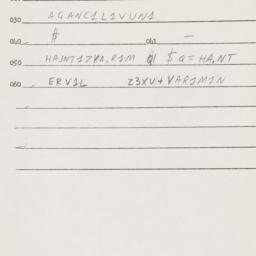 030 AGANC1L1VUN1
040 # 041 —
050 HA,NT1ZYA,R1M $ a = HA,NT
060 ERV1L Z3XU4VAR1M1N